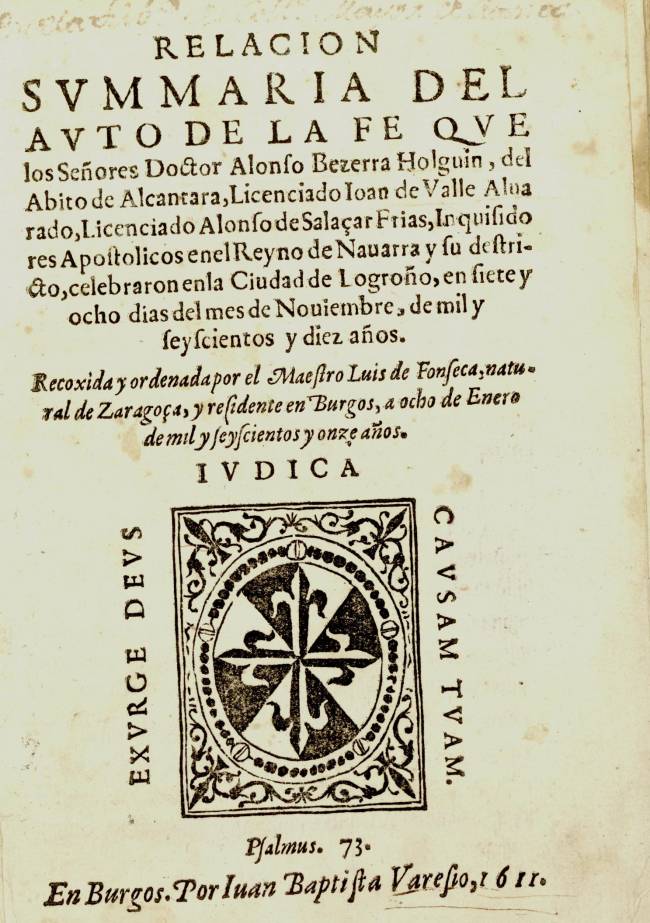 RELACION
SVMMARIA DEL
AVTO DE LA FE QVE
los Señores Doctor Alonſo Bezerra Holguin, del
Abito de Alcantara, Licenciado Ioan de Valle Alua
rado, Licenciado Alonſo de Salaçar Frias, Inquiſido
res Apoſtolicos enel Reyno de Nauarra y ſu deſtri-
cto, celebraron enla Ciudad de Logroño, en ſiete y
ocho dias del mes de Nouiembre, de mil y
ſeyſcientos y diez años.
Recoxida y ordenada por el Maeſtro Luis de Fonſeca, natu-
ral de Zaragoça, y reſidente en Burgos, a ocho de Enero
de mil y ſeyſcientos y onze años.
IVDICA
EXVRGE DEVS
CAVSAM TVAM.
Pſalmus. 73.
En Burgos. Por Iuan Baptiſta Vareſio, 1611.